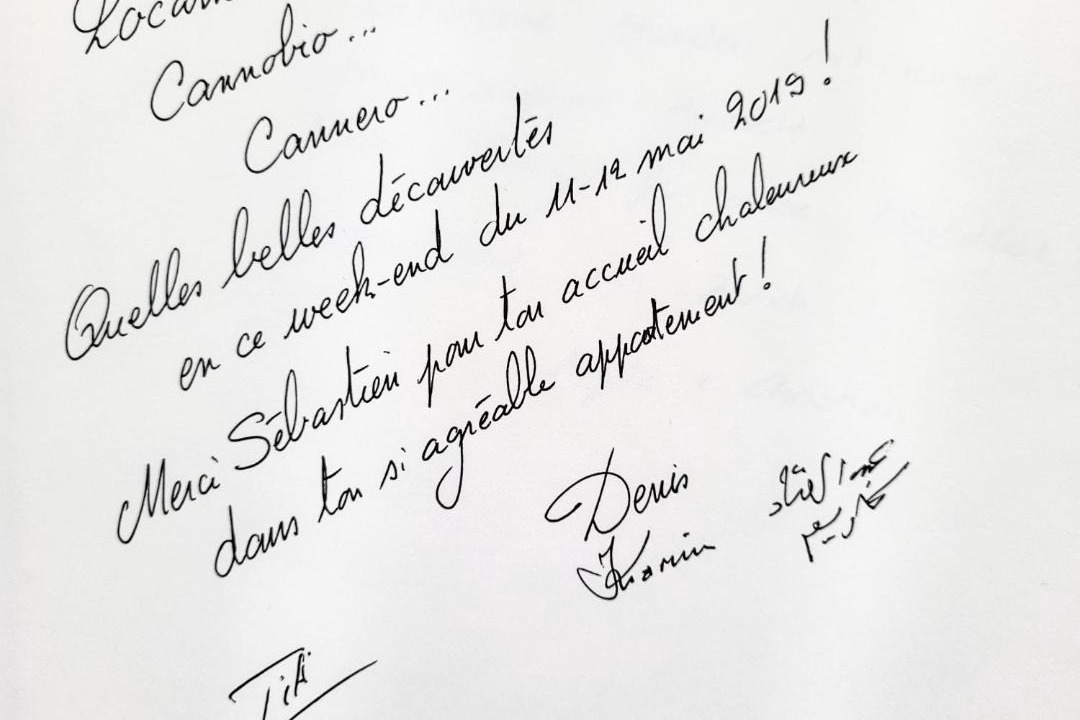 Cannobio...
Cannero...
Quelles belles découvertes
en ce week-end du 11-12 mai 2019!
Merci Sébastien pour ton accueil chaleureux
dans ton si agréable appartement!
Denis
Karin
Titi